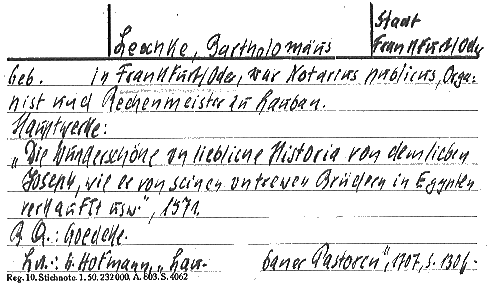 Leschke, Bartholomäus
Stadt
Frankfurt/Oder
Geb. in Frankfurt/Oder, war Notarius publicus, Orga-
nist und Rechenmeister zu Lauban.
Hauptwerke:
„Die wunderschöne vn liebliche Historia von dem lieben
Joseph, wie er von seinen vntrewen Brüdern in Egypten
verkaufft usw.", 1571.
B Q.: Goedeke.
G. Hofmann, „Lau- baner Pastoren", 1707, S. 130f.
Reg. 10. Stichnote. 1. 50. 232000. A. 803. S. 4062